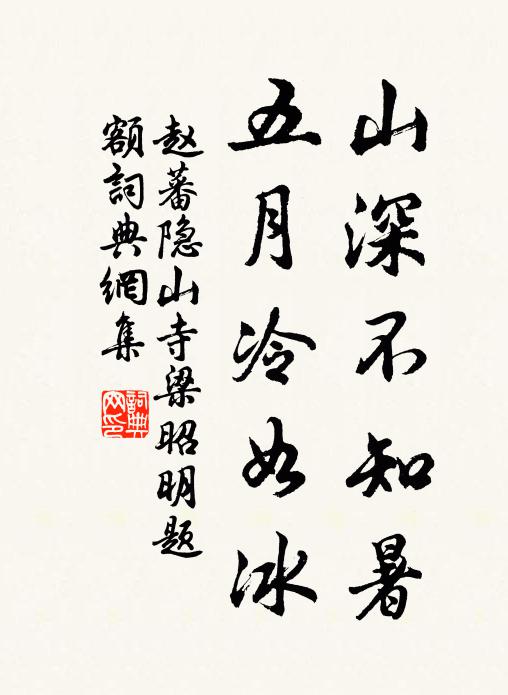 山深不知暑
五月冷如冰
赵蕃隐山寺梁昭明题
额詞典網集
詞典
网印